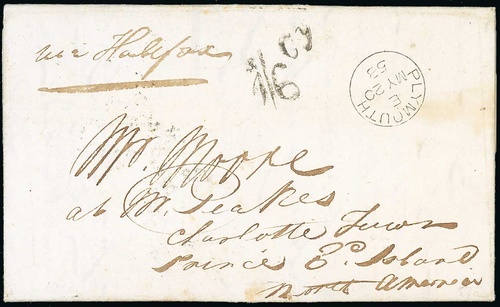 via Halifax
PLYMOUTH
E
MY 20
53
Mr. Moore
at Mr. Peakes
Charlotte Town
Prince Ed. Island
North America